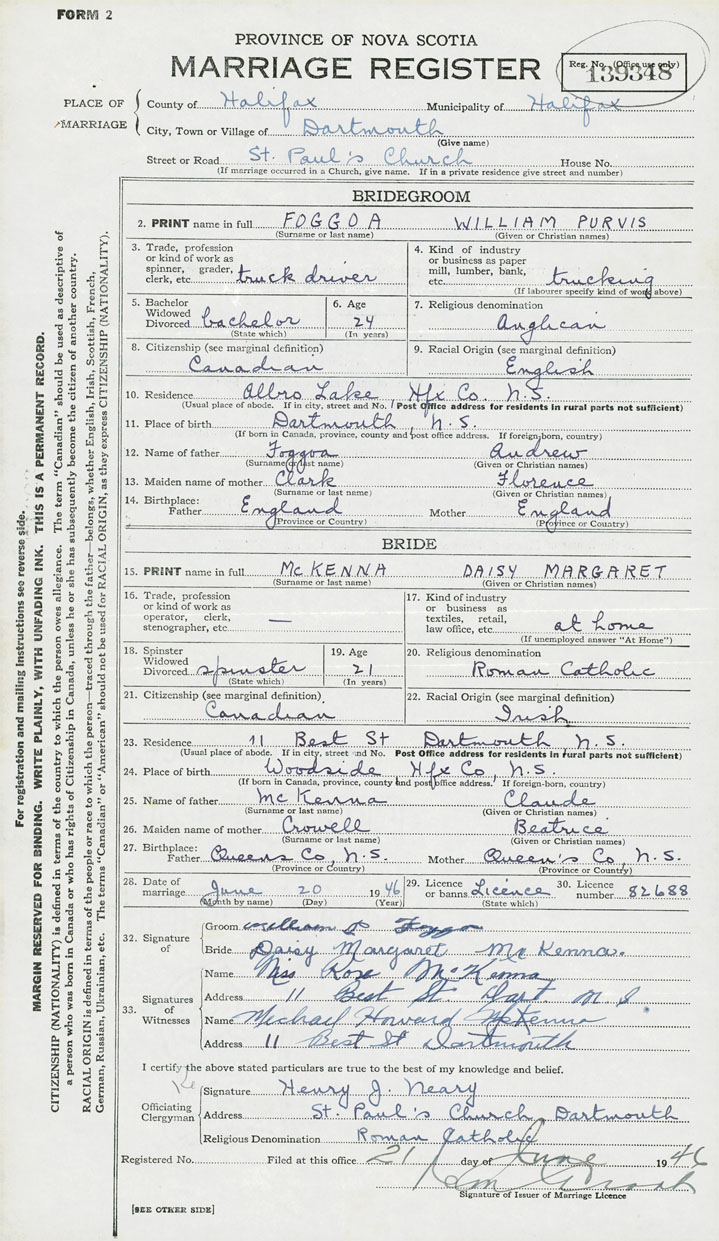 FORM 2
PROVINCE OF NOVA SCOTIA
MARRIAGE REGISTER
Reg. No. (Office use only)
139348
PLACE OF MARRIAGE
County of Halifax Municipality of Halifax
City, Town or Village of Dartmouth
(Give name)
Street or Road St. Paul's Church House No.
(If marriage occurred in a Church, give name. If in a private residence give street and number)
BRIDEGROOM
2. PRINT name in full FOGGOA WILLIAM PURVIS
(Surname or last name) (Given or Christian names)
3. Trade, profession or kind of work as spinner, grader, clerk, etc. truck driver
4. Kind of industry or business as paper mill, lumber, bank, etc. trucking
(If labourer specify kind of work above)
5. Bachelor Widowed Divorced bachelor
(State which)
6. Age 24
(In years)
7. Religious denomination
Anglican
8. Citizenship (see marginal definition)
Canadian
9. Racial Origin (see marginal definition)
English
10. Residence Albro Lake Hfx Co. N.S.
(Usual place of abode. If in city, street and No. Post Office address for residents in rural parts not sufficient)
11. Place of birth Dartmouth, N.S.
(If born in Canada, province, county and post office address. If foreign-born, country)
12. Name of father Foggoa Andrew
(Surname or last name) (Given or Christian names)
13. Maiden name of mother Clark Florence
(Surname or last name) (Given or Christian names)
14. Birthplace: Father England Mother England
(Province or Country) (Province or Country)
BRIDE
15. PRINT name in full McKENNA DAISY MARGARET
(Surname or last name) (Given or Christian names)
16. Trade, profession or kind of work as operator, clerk, stenographer, etc. —
17. Kind of industry or business as textiles, retail, law office, etc. at home
(If unemployed answer "At Home")
18. Spinster Widowed Divorced spinster
(State which)
19. Age 21
(In years)
20. Religious denomination
Roman Catholic
21. Citizenship (see marginal definition)
Canadian
22. Racial Origin (see marginal definition)
Irish
23. Residence 11 Best St Dartmouth N.S.
(Usual place of abode. If in city, street and No. Post Office address for residents in rural parts not sufficient)
24. Place of birth Woodside Hfx Co, N.S.
(If born in Canada, province, county and post office address. If foreign-born, country)
25. Name of father McKenna Claude
(Surname or last name) (Given or Christian names)
26. Maiden name of mother Crowell Beatrice
(Surname or last name) (Given or Christian names)
27. Birthplace: Father Queens Co, N.S. Mother Queen's Co, N.S.
(Province or Country) (Province or Country)
28. Date of marriage June 20 1946
(Month by name) (Day) (Year)
29. Licence or banns Licence
(State which)
30. Licence number 82688
32. Signature of
Groom William P Foggo
Bride Daisy Margaret McKenna.
33. Signatures of Witnesses
Name Miss Rose McKenna
Address 11 Best St Dart. N S
Name Michael Howard McKenna
Address 11 Best St Dartmouth
I certify the above stated particulars are true to the best of my knowledge and belief.
Officiating Clergyman
Signature Henry J. Neary
Address St. Paul's Church, Dartmouth
Religious Denomination Roman Catholic
Registered No. Filed at this office 21 day of June 1946
Signature of Issuer of Marriage Licence
[SEE OTHER SIDE]
For registration and mailing instructions see reverse side.
MARGIN RESERVED FOR BINDING. WRITE PLAINLY, WITH UNFADING INK. THIS IS A PERMANENT RECORD.
CITIZENSHIP (NATIONALITY) is defined in terms of the country to which the person owes allegiance. The term "Canadian" should be used as descriptive of
a person who was born in Canada or who has rights of Citizenship in Canada, unless he or she has subsequently become the citizen of another country.
RACIAL ORIGIN is defined in terms of the people or race to which the person—traced through the father—belongs, whether English, Irish, Scottish, French,
German, Russian, Ukrainian, etc. The terms "Canadian" or "American" should not be used for RACIAL ORIGIN, as they express CITIZENSHIP (NATIONALITY).